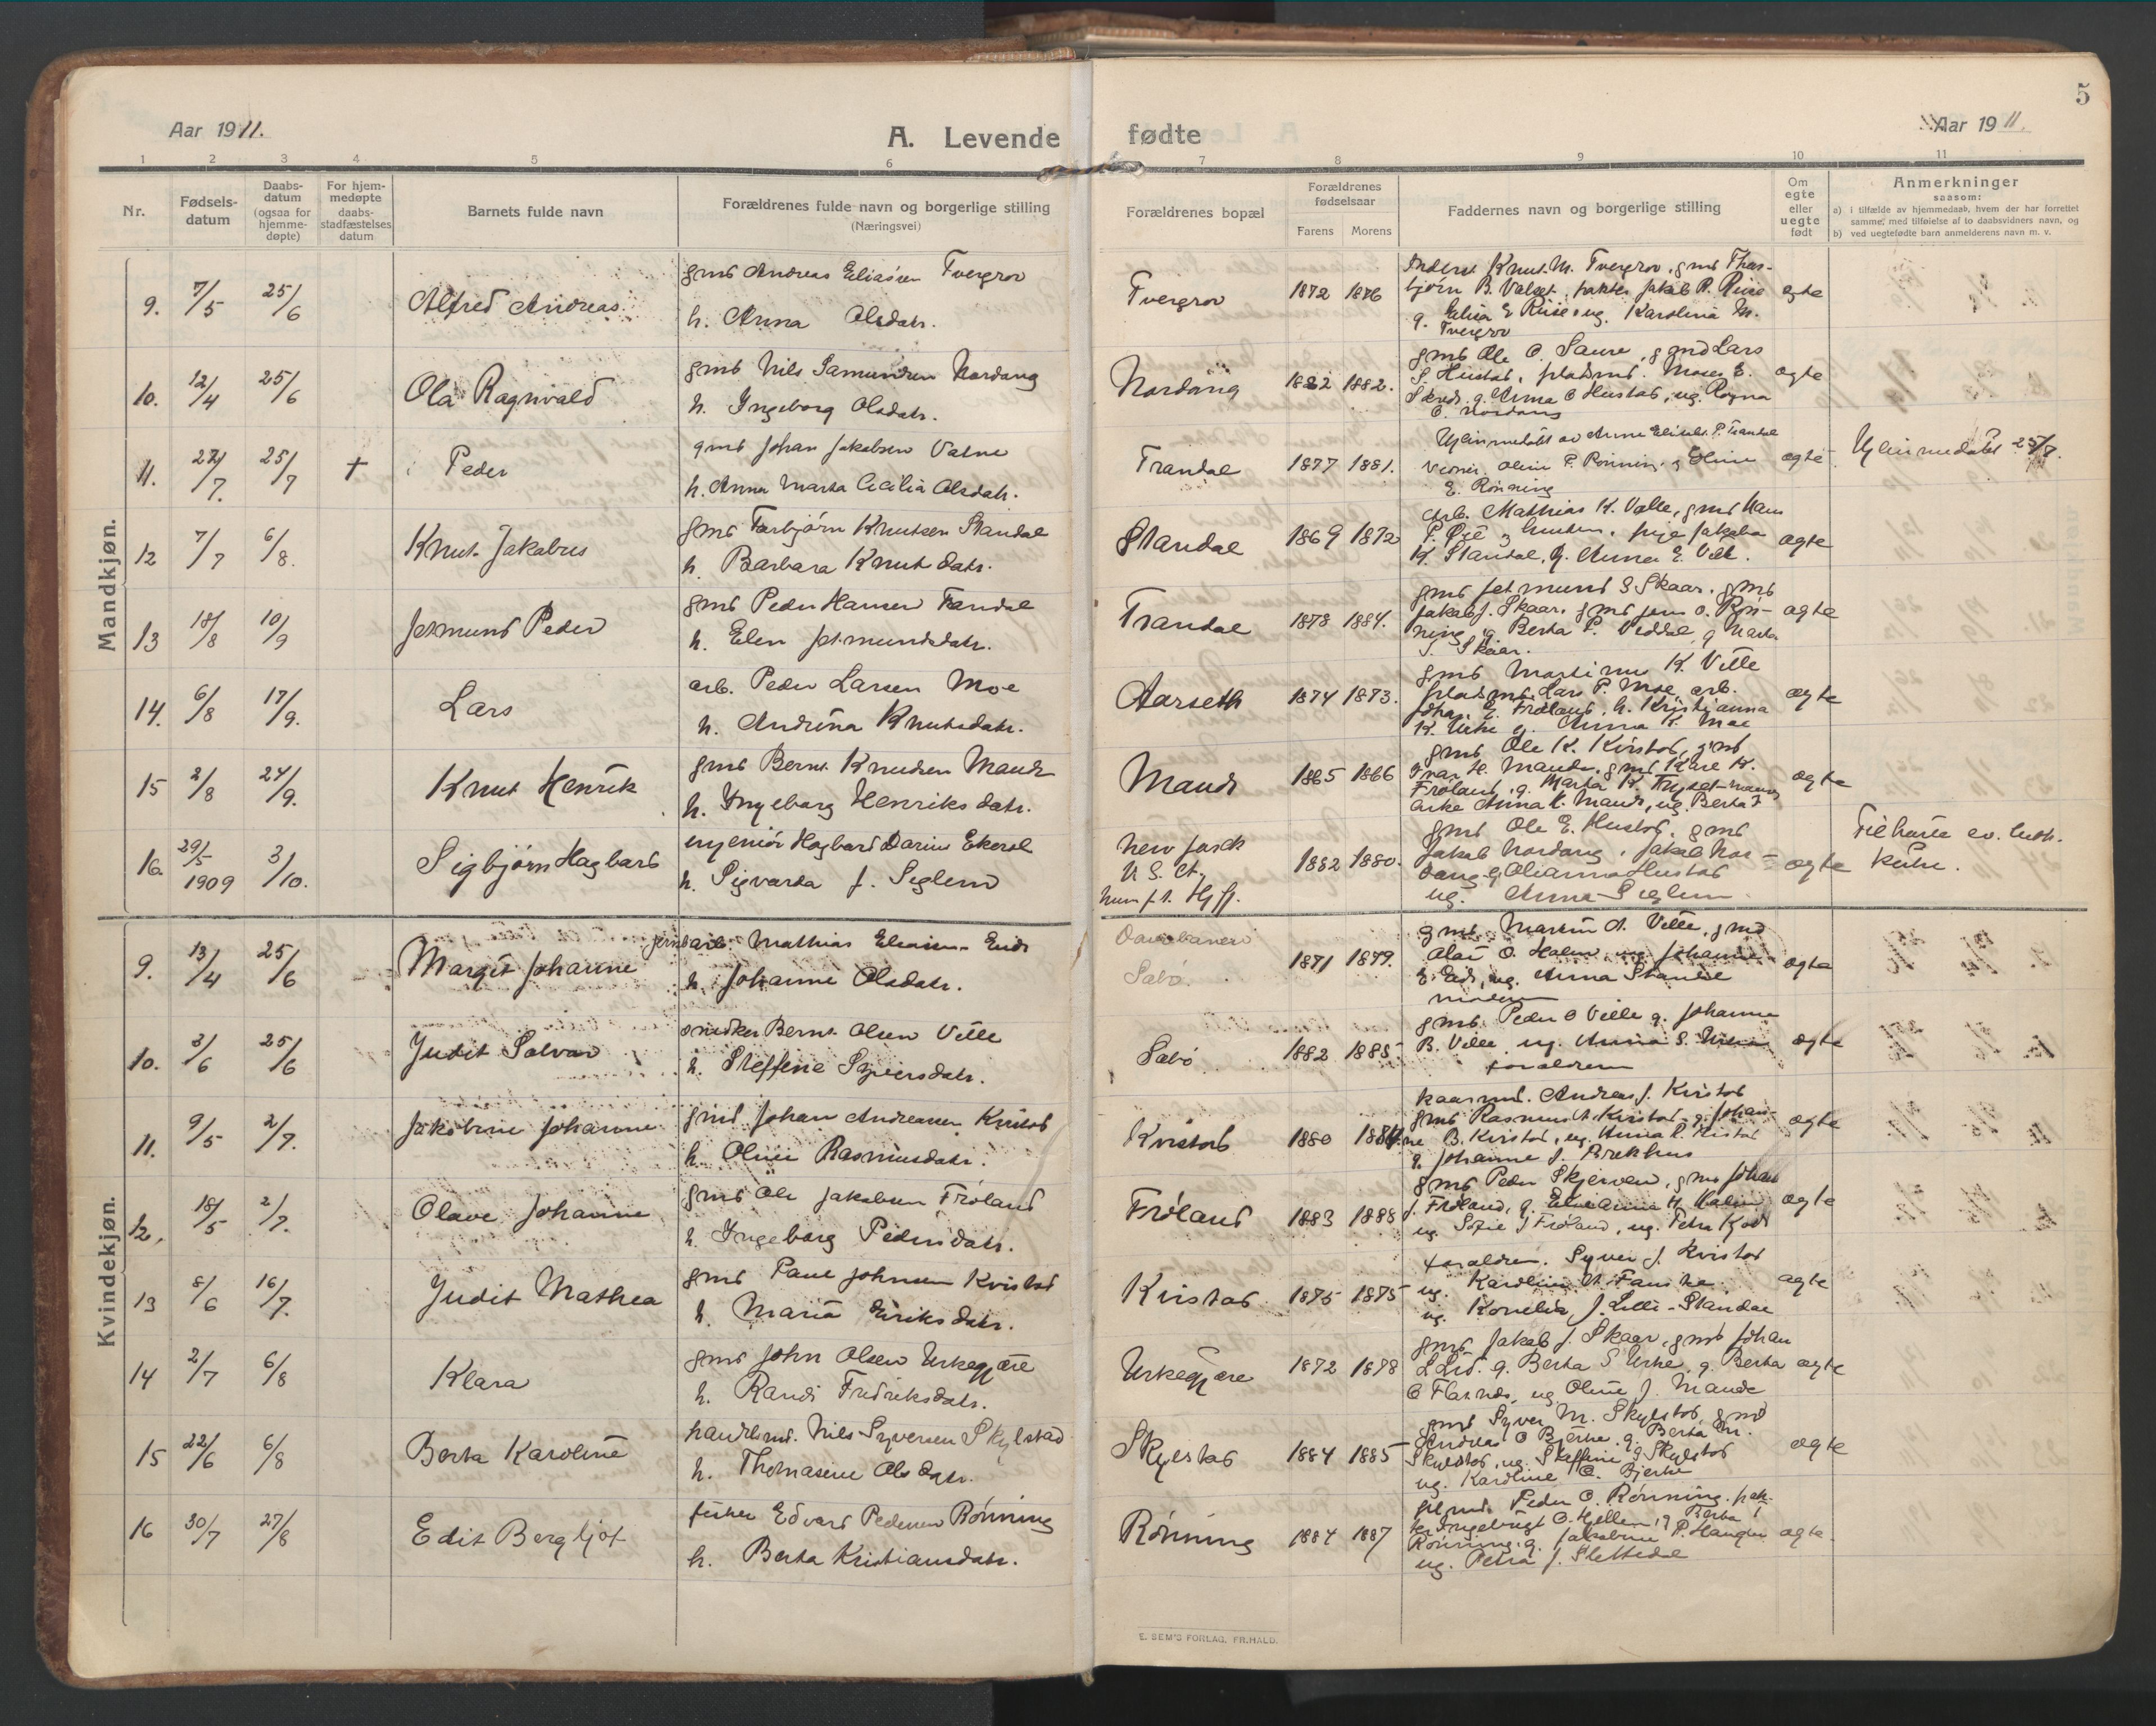 5
Aar 1911.
A. Levende
fødte
Aar 1911.
1 2 3 4 5 6 7 8 9 10 11
Nr.
Fødsels-
datum
Daabs-
datum
(ogsaa for
hjemme-
døpte)
For hjem-
medøpte
daabs-
stadfæstelses
datum
Barnets fulde navn
Forældrenes fulde navn og borgerlige stilling
(Næringsvei)
Forældrenes bopæl
Forældrenes
fødselsaar
Farens Morens
Faddernes navn og borgerlige stilling
Om
egte
eller
uegte
født
Anmerkninger
saasom:
a) i tilfælde av hjemmedaab, hvem der har forrettet
samme, med tilføielse af to daabsvidners navn, og
b) ved uegtefødte barn anmelderens navn m. v.
Mandkjøn.
9. 7/5 25/6 Alfred Andreas
gmd Andreas Eliassen Tvergrov
h. Anna Olsdatr.
Tvergrov 1872 1876
Knut M. Tvergrov, gmd
bjørn B. Valset, Jakob P. Riise
g. Elisa E Riise, ug. Karolina M.
Tvergrov
egte
10. 12/4 25/6 Ola Ragnvald
gmd Nils Samundsen Nordang
h. Ingeborg Olsdatr.
Nordang 1882 1882.
gmd Ole O. Saure, gmd Lars
S. Hustad, pladsmd. Moses E.
g. Anna O Hustad, ug. Ragna
E. Nordang
egte
11. 27/7. 25/7 + Peder
gmd Johan Jakobsen Vatne
h. Anna Marta Cicilia Olsdatr.
Trandal 1877 1881.
Hjemmedøbt av Anne P. Trandal
Oline P. Rönning, g Eline
E. Rönning
egte
Hjemmedøbt 25/7.
12 7/7 6/8. Knut Jakobus
gmd Torbjørn Knutsen Standal
h. Barbara Knutsdatr.
Standal 1869 1872
Arb. Mathias K. Valle, gmd Hans
P. Øie g hustru, pige Jakoba
K. Standal, g. Anna E. Valle.
egte
13 18/8 10/9 Jetmund Peder
gmd Peder Hansen Trandal
h. Elen Jetmundsdatr.
Trandal 1878 1884.
gmd Jetmund S Skaar, gmd
Jakob J. Skaar, gmd Jens O. Rön-
ning, g Berta P. Viddal, g Marta
S. Skaar.
egte
14. 6/8 17/9. Lars
arb. Peder Larsen Moe
h. Andrina Knutsdatr.
Aarseth 1874 1873.
gmd Martinus K. Velle
pladsmd. Lars P. Moe, arb.
Johan E. Frøland, h. Kristianna
K. Urke g. Anna K. Moe
egte
15 2/8 24/9. Knut Henrik
gmd Bernt Knudsen Maude
h. Ingeborg Henriksdatr.
Maude 1865 1866
gmd Ole K. Kvistad, gmd
Ivar H. Maude, gmd Kare K.
Frøland, g. Marta K.
Anna K. Maude, ug. Berta
egte
16 29/5 1909 3/10. Sigbjørn Hagbard
ingeniör Hagbard Darius Ekerold
h. Sigvarda f. Seglem
New York
U. S. A.
1882 1880.
gmd Ole E. Hustad, gmd
Jakob Nordang, Jakob Nor-
dang, g Olianna Hustad
ug. Anna Seglem
egte
ev. luth.
kirke.
Kvindekjøn.
9. 13/4 25/6 Margit Johanne
arb. Mathias Eliassen Eide
h. Johanne Olsdatr.
Sæbø. 1871 1879.
gmd. Martin A. Velle, gmd
Olai O. Holen, ug. Johanne
E. Eide, ug. Anna Standal
moderen
egte
10. 3/6 25/6 Judit Solvor
snedker Bernt Olsen Velle
h. Steffine Syversdatr.
Sæbø 1882 1885.
gmd. Peder O Velle g. Johanne
B. Velle, ug. Anna S.
forældrene
egte
11. 9/5 2/7. Jakobine Johanne
gmd Johan Andreassen Kvistad
h. Oline Rasmusdatr.
Kvistad 1880 1884.
kaarmd. Andreas J. Kvistad
gmd Rasmus A. Kvistad, g. Johan-
ne B. Kvistad, ug. Anna R. Kvistad
g. Johanne J. Brekhus
egte
12. 18/5 2/7. Olave Johanne
gmd Ole Jakobsen Frøland
h. Ingeborg Pedersdatr.
Frøland 1883 1888
gmd Peder Skjerven, gmd Johan
J. Frøland, g.
ug. Sofie J Frøland, ug. Petra
egte
13 8/6 16/7. Judit Mathea
gmd Paul Johnsen Kvistad
h. Maria Eriksdatr.
Kvistad 1875 1875
forældrene. Syver J. Kvistad
ug. Karoline A. Fauske.
ug. Kornelia J. Lille-Standal
egte
14 2/7 6/8 Klara
gmd John Olsen Urkegjære
h. Randi Fredriksdatr.
Urkegjære 1872 1878
gmd Jakob J. Skaar, gmd Johan
L Lid. g. Berta S Urke, g. Berta
O Flasnes, ug Oline J. Maude
egte
15 22/6 6/8 Berta Karoline
handelsmd. Nils Syversen Skylstad
h. Thomasine Olsdatr.
Skylstad 1884 1885
gmd Syver M. Skylstad, gmd
Andreas O Bjerke, g. Berta M.
Skylstad, ug. Steffine G Skylstad
ug. Karoline O. Bjerke
egte
16 30/7 27/8 Edit Bergljot
fisker Edvard Pedersen Rönning
h. Berta Kristiansdatr.
Rönning 1884 1887
Peder O. Rönning,
Ingebrigt O. Hjellen, g Berta
Rönning, g. Jakobine P. Haugen
ug. Petra J. Slettedal
egte.
E. SEM'S FORLAG, FR.HALD.